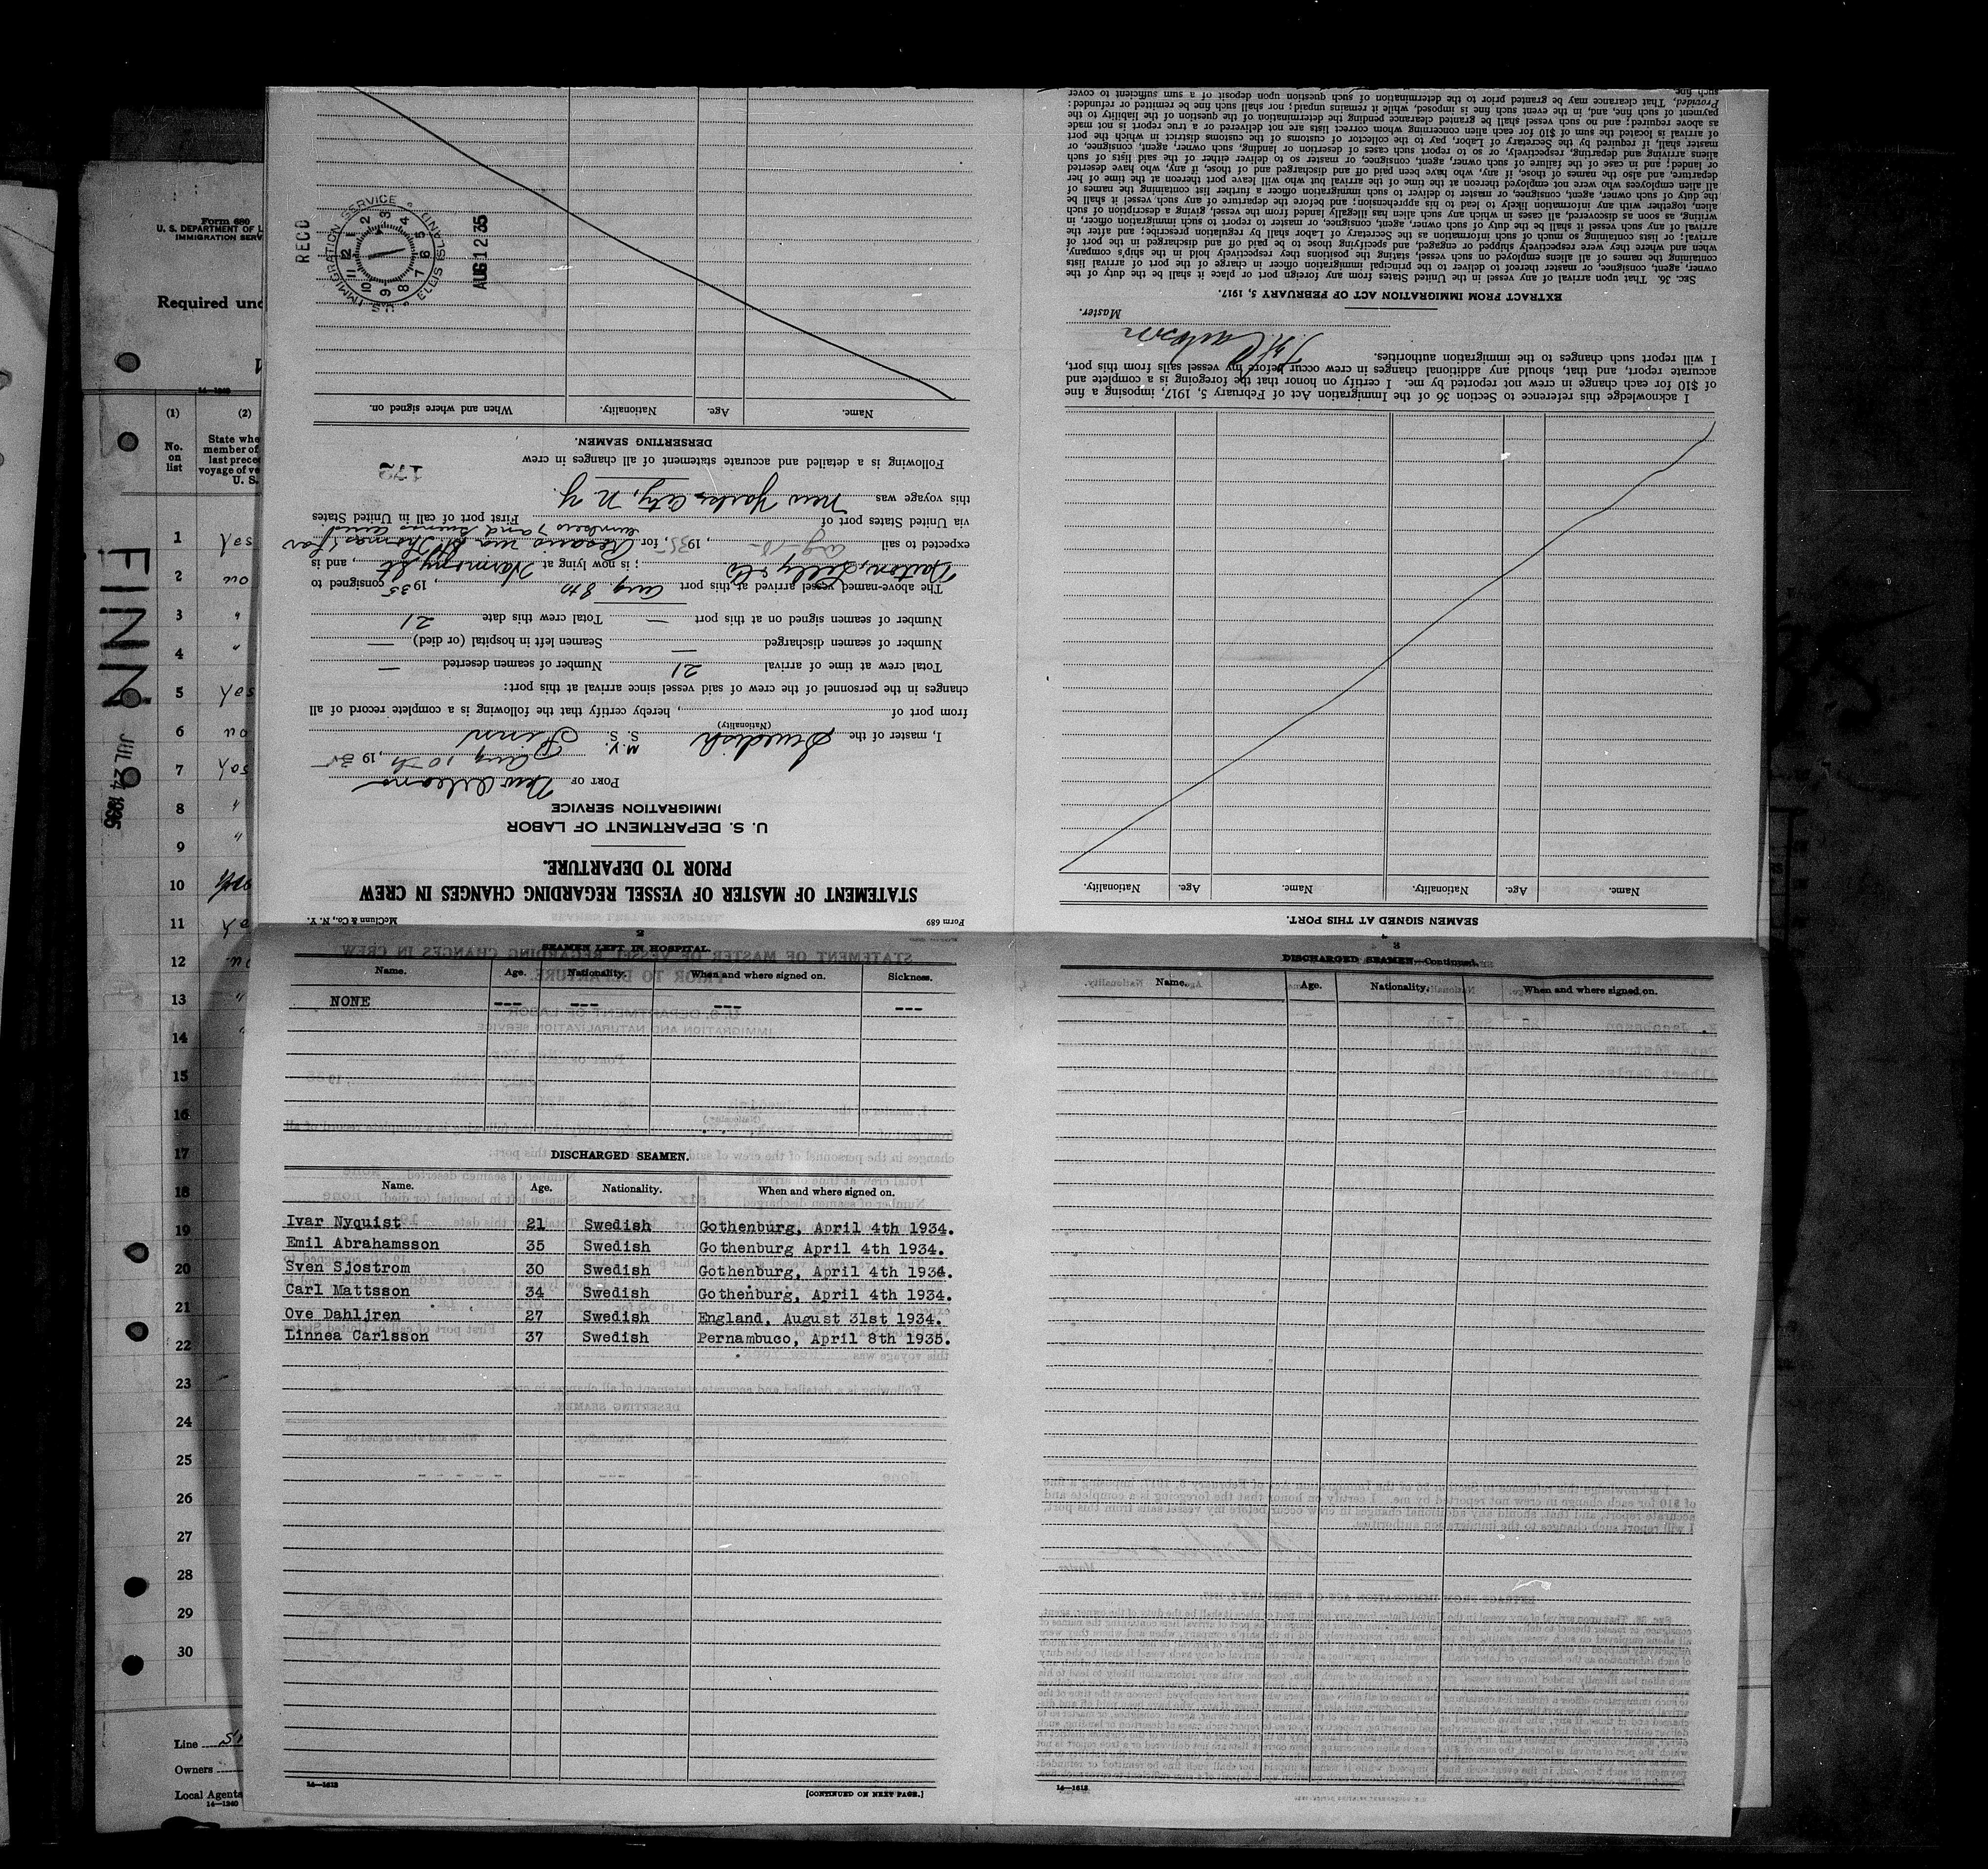 Form 680
U. S. DEPARTMENT OF L
IMMIGRATION SERV
Required und
14—1240
(1)
(2)
No.
on
list
State whe
member of
last prece
voyage of ve
U. S.
1 Yes
2 no
3 "
4 "
5 Yes
6 no
7 Yes
8 "
9 "
10 Yes
11
12
13 "
14 "
15
16
17
18
19
20
21
22
23
24
25
26
27
28
29
30
Line
Owners
Local Agents
14—1240
FINN
JUL 24 1935
Form 689
McClunn & Co., N. Y.
STATEMENT OF MASTER OF VESSEL REGARDING CHANGES IN CREW
PRIOR TO DEPARTURE.
U. S. DEPARTMENT OF LABOR
IMMIGRATION SERVICE
PORT OF New Orleans
Aug 10th, 1935
I, master of the Swedish M.V. S. S. Finn
(Nationality)
from port of , hereby certify that the following is a complete record of all
changes in the personnel of the crew of said vessel since arrival at this port:
Total crew at time of arrival 21 Number of seamen deserted —
Number of seamen discharged — Seamen left in hospital (or died) —
Number of seamen signed on at this port — Total crew this date 21
The above-named vessel arrived at this port Aug 8th, 1935 consigned to
; is now lying at Harmony St, and is
expected to sail , 1935, for Rosario via St Thomas (for
bunkers) and Buenos Aires
via United States port of First port of call in United States
this voyage was New York City, N.Y.
172
Following is a detailed and accurate statement of all changes in crew
DERSERTING SEAMEN.
Name. Age. Nationality. When and where signed on.
REC'D
U.S. IMMIGRATION SERVICE ELLIS ISLAND
AUG 12 35
SEAMEN SIGNED AT THIS PORT.
Name. Age. Nationality. Name. Age. Nationality.
I acknowledge this reference to Section 36 of the Immigration Act of February 5, 1917, imposing a fine
of $10 for each change in crew not reported by me. I certify on honor that the foregoing is a complete and
accurate report, and that, should any additional changes in crew occur before my vessel sails from this port,
I will report such changes to the immigration authorities.
Master.
EXTRACT FROM IMMIGRATION ACT OF FEBRUARY 5, 1917.
SEC. 36. That upon arrival of any vessel in the United States from any foreign port or place it shall be the duty of the
owner, agent, consignee, or master thereof to deliver to the principal immigration officer in charge of the port of arrival lists
containing the names of all aliens employed on such vessel, stating the positions they respectively hold in the ship's company,
when and where they were respectively shipped or engaged, and specifying those to be paid off and discharged in the port of
arrival; or lists containing so much of such information as the Secretary of Labor shall by regulation prescribe; and after the
arrival of any such vessel it shall be the duty of such owner, agent, consignee, or master to report to such immigration officer, in
writing, as soon as discovered, all cases in which any such alien has illegally landed from the vessel, giving a description of such
alien, together with any information likely to lead to his apprehension; and before the departure of any such vessel it shall be
the duty of such owner, agent, consignee, or master to deliver to such immigration officer a further list containing the names of
all alien employees who were not employed thereon at the time of the arrival but who will leave port thereon at the time of her
departure, and also the names of those, if any, who have been paid off and discharged and of those, if any, who have deserted
or landed; and in case of the failure of such owner, agent, consignee, or master so to deliver either of the said lists of such
aliens arriving and departing, respectively, or so to report such cases of desertion or landing, such owner, agent, consignee, or
master shall, if required by the Secretary of Labor, pay to the collector of customs of the customs district in which the port
of arrival is located the sum of $10 for each alien concerning whom correct lists are not delivered or a true report is not made
as above required; and no such vessel shall be granted clearance pending the determination of the question of the liability to the
payment of such fine, and, in the event such fine is imposed, while it remains unpaid; nor shall such fine be remitted or refunded:
Provided, That clearance may be granted prior to the determination of such question upon deposit of a sum sufficient to cover
such fine
2
SEAMEN LEFT IN HOSPITAL.
Name. Age. Nationality. When and where signed on. Sickness.
NONE --- --- --- ---
DISCHARGED SEAMEN.
Name. Age. Nationality. When and where signed on.
Ivar Nyquist 21 Swedish Gothenburg, April 4th 1934.
Emil Abrahamsson 35 Swedish Gothenburg April 4th 1934.
Sven Sjostrom 30 Swedish Gothenburg, April 4th 1934.
Carl Mattsson 34 Swedish Gothenburg, April 4th 1934.
Ove Dahljren 27 Swedish England, August 31st 1934.
Linnea Carlsson 37 Swedish Pernambuco, April 8th 1935.
14—1618
[CONTINUED ON NEXT PAGE.]
3
DISCHARGED SEAMEN—Continued.
Name. Age. Nationality. When and where signed on.
14—1618